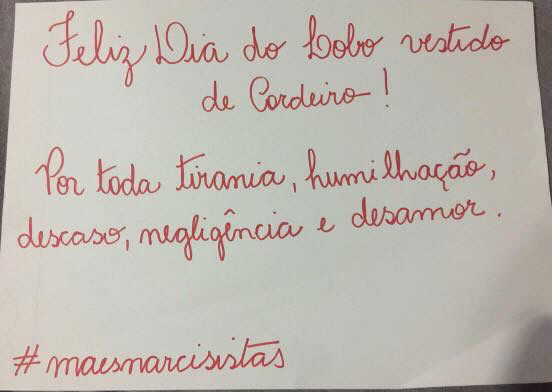 Feliz Dia do Lobo vestido
de Cordeiro!
Por toda tirania, humilhação,
descaso, negligência e desamor.
#maesnarcisistas